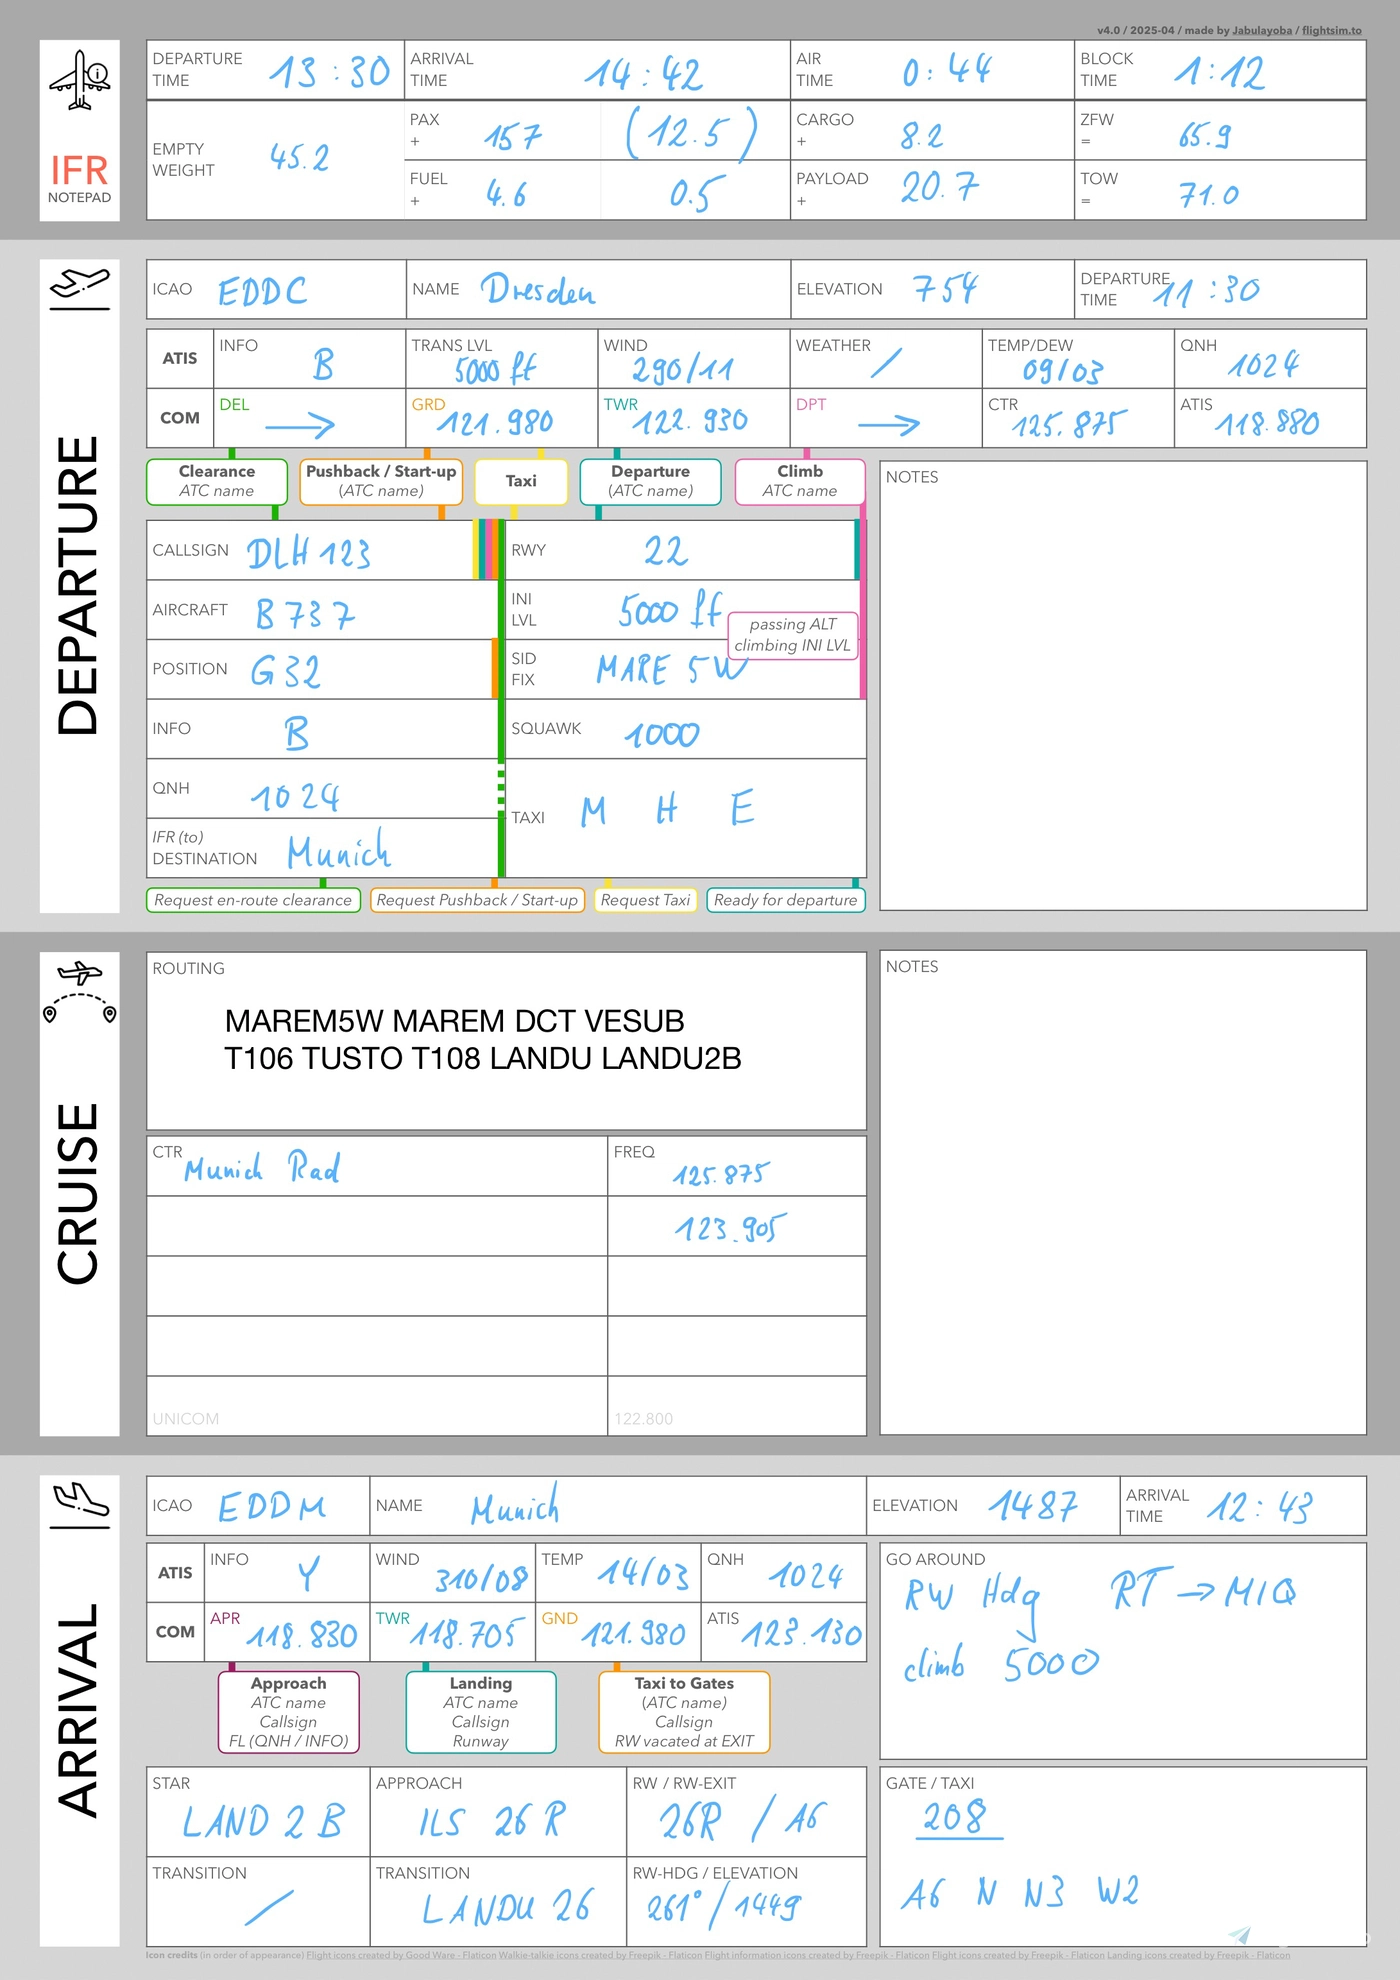 v4.0 / 2025-04 / made by Jabulayoba / flightsim.to
IFR
NOTEPAD
DEPARTURE TIME 13:30 ARRIVAL TIME 14:42 AIR TIME 0:44 BLOCK TIME 1:12
EMPTY WEIGHT 45.2
PAX + 157 (12.5) CARGO + 8.2 ZFW = 65.9
FUEL + 4.6 0.5 PAYLOAD + 20.7 TOW = 71.0
DEPARTURE
ICAO EDDC NAME Dresden ELEVATION 754 DEPARTURE TIME 11:30
ATIS INFO B TRANS LVL 5000 ft WIND 290/11 WEATHER / TEMP/DEW 09/03 QNH 1024
COM DEL → GRD 121.980 TWR 122.930 DPT → CTR 125.875 ATIS 118.880
Clearance Pushback / Start-up Taxi Departure Climb
ATC name (ATC name) (ATC name) ATC name
NOTES
CALLSIGN DLH 123 RWY 22
AIRCRAFT B737 INI LVL 5000 ft
passing ALT
climbing INI LVL
POSITION G32 SID FIX MARE 5W
INFO B SQUAWK 1000
QNH 1024 TAXI M H E
IFR (to) DESTINATION Munich
Request en-route clearance Request Pushback / Start-up Request Taxi Ready for departure
CRUISE
ROUTING
MAREM5W MAREM DCT VESUB
T106 TUSTO T108 LANDU LANDU2B
NOTES
CTR Munich Rad FREQ 125.875
123.905
UNICOM 122.800
ARRIVAL
ICAO EDDM NAME Munich ELEVATION 1487 ARRIVAL TIME 12:43
ATIS INFO Y WIND 310/08 TEMP 14/03 QNH 1024
COM APR 118.830 TWR 118.705 GND 121.980 ATIS 123.130
GO AROUND
RW Hdg RT → MIQ
climb 5000
Approach Landing Taxi to Gates
ATC name ATC name (ATC name)
Callsign Callsign Callsign
FL (QNH / INFO) Runway RW vacated at EXIT
STAR LAND 2B APPROACH ILS 26R RW / RW-EXIT 26R / A6
TRANSITION / TRANSITION LANDU 26 RW-HDG / ELEVATION 261° / 1449
GATE / TAXI
208
A6 N N3 W2
Icon credits (in order of appearance) Flight icons created by Good Ware - Flaticon Walkie-talkie icons created by Freepik - Flaticon Flight information icons created by Freepik - Flaticon Flight icons created by Freepik - Flaticon Landing icons created by Freepik - Flaticon